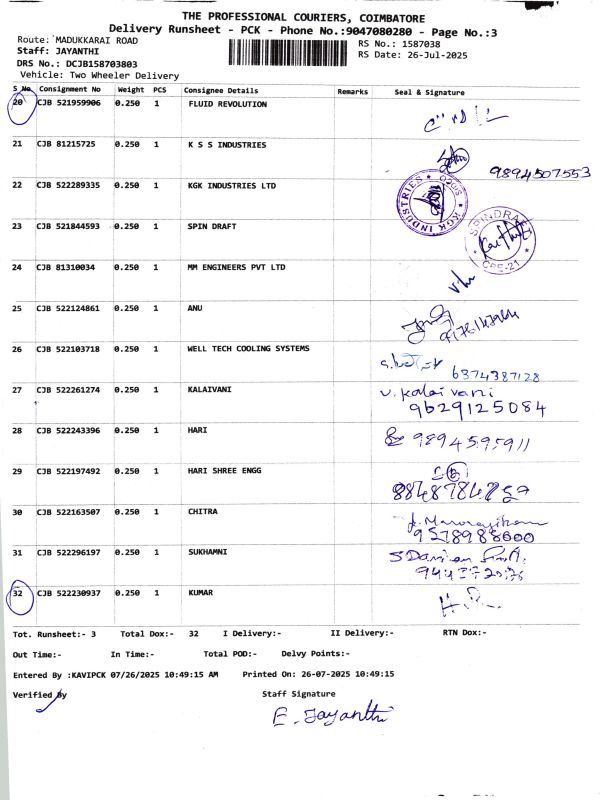 THE PROFESSIONAL COURIERS, COIMBATORE
Delivery Runsheet - PCK - Phone No.:9047080280 - Page No.:3
Route: MADUKKARAI ROAD
RS No.: 1587038
Staff: JAYANTHI
RS Date: 26-Jul-2025
DRS No.: DCJB158703803
Vehicle: Two Wheeler Delivery
S No. Consignment No Weight PCS Consignee Details Remarks Seal & Signature
20 CJB 521959906 0.250 1 FLUID REVOLUTION
21 CJB 81215725 0.250 1 K S S INDUSTRIES
9894507553
22 CJB 522289335 0.250 1 KGK INDUSTRIES LTD
KGK INDUSTRIES
23 CJB 521844593 0.250 1 SPIN DRAFT
SPINDRAFT
CBE-21
24 CJB 81310034 0.250 1 MM ENGINEERS PVT LTD
25 CJB 522124861 0.250 1 ANU
26 CJB 522103718 0.250 1 WELL TECH COOLING SYSTEMS
6374387128
27 CJB 522261274 0.250 1 KALAIVANI
v. kalaivani
9629125084
28 CJB 522243396 0.250 1 HARI
9894595911
29 CJB 522197492 0.250 1 HARI SHREE ENGG
30 CJB 522163507 0.250 1 CHITRA
9578988600
31 CJB 522296197 0.250 1 SUKHAMNI
32 CJB 522230937 0.250 1 KUMAR
Tot. Runsheet:- 3 Total Dox:- 32 I Delivery:- II Delivery:- RTN Dox:-
Out Time:- In Time:- Total POD:- Delvy Points:-
Entered By :KAVIPCK 07/26/2025 10:49:15 AM Printed On: 26-07-2025 10:49:15
Verified By Staff Signature
E. Jayanthi